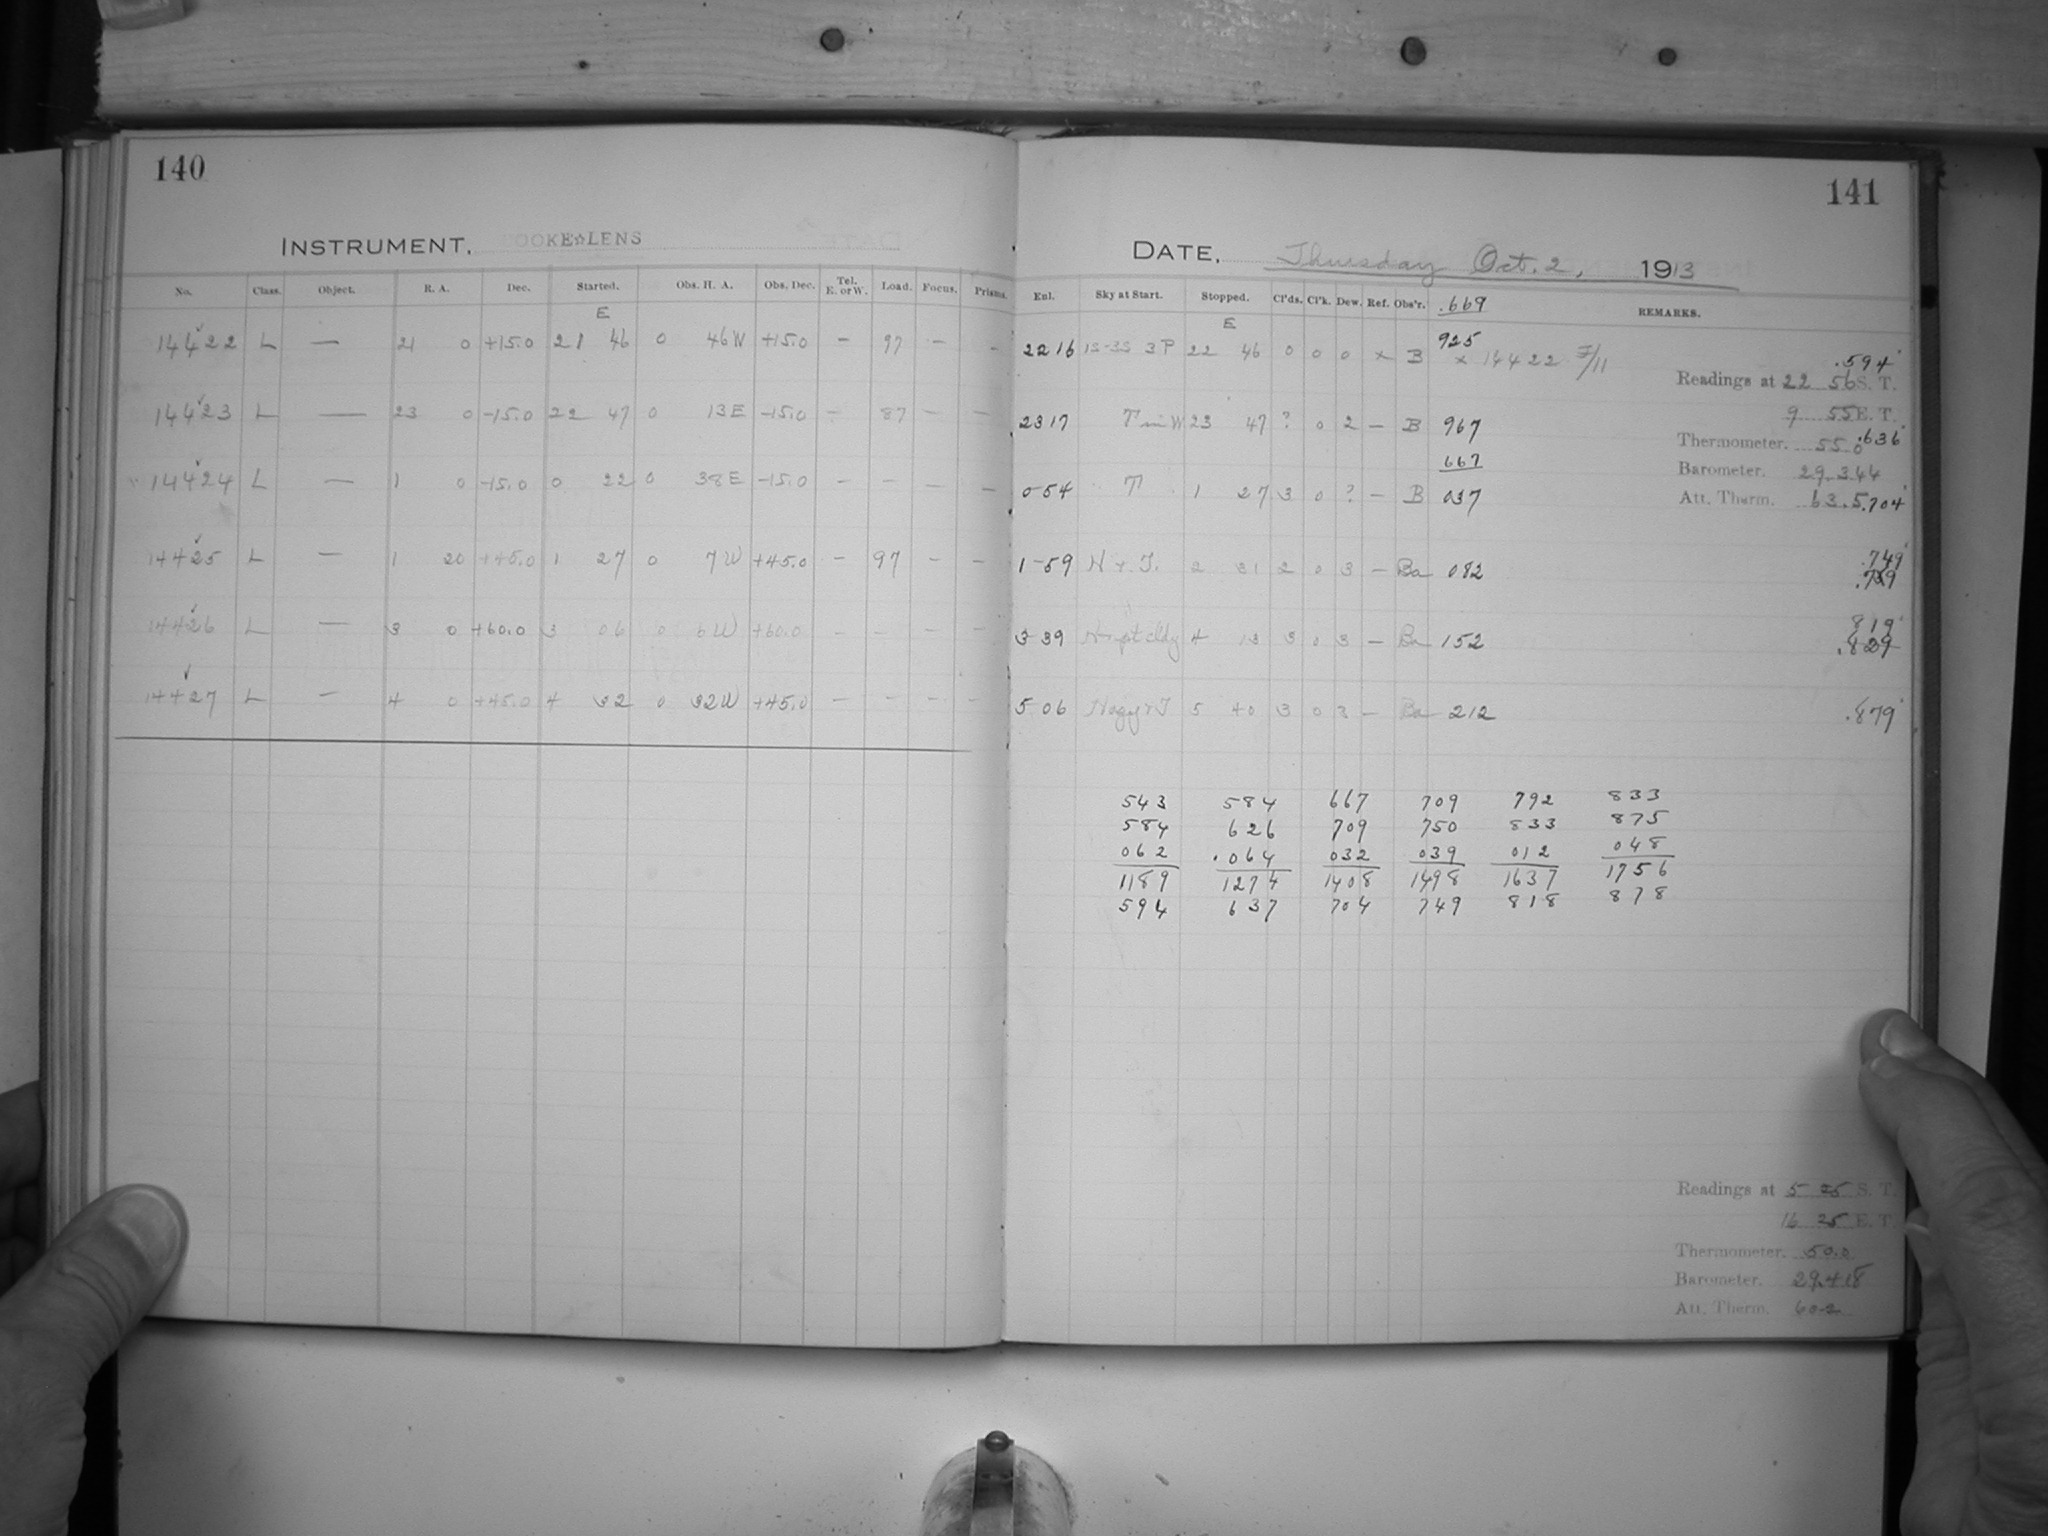 140
INSTRUMENT, COOKE☆LENS
No. Class. Object. R. A. Dec. Started. Obs. H. A. Obs. Dec. Tel. E. or W. Load. Focus. Prisms.
E
14422 L — 21 0 +15.0 21 46 0 46W +15.0 — 97 — —
14423 L — 23 0 -15.0 22 47 0 13E -15.0 — 87 — —
14424 L — 1 0 -15.0 0 22 0 38E -15.0 — — — —
14425 L — 1 20 +45.0 1 27 0 7W +45.0 — 97 — —
14426 L — 3 0 +60.0 3 06 0 6W +60.0 — — — —
14427 L — 4 0 +45.0 4 32 0 32W +45.0 — — — —
141
DATE, Thursday Oct. 2, 1913
Enl. Sky at Start. Stopped. Cl'ds. Cl'k. Dew. Ref. Obs'r. .669 REMARKS.
E
2216 1S-3S 3P 22 46 0 0 0 x B 925 x 14422 F/11 .594
Readings at 22 56 S. T.
9 55 E. T.
2317 T in W 23 47 ? 0 2 — B 967
Thermometer. 55.0 .636
667
Barometer. 29.344
0 54 T 1 27 3 0 ? — B 037
Att. Therm. 63.5 .704
1-59 H & T. 2 31 2 0 3 — Ba 082 .749
.759
3 39 H & pt cldy 4 13 3 0 3 — Ba 152 819
.829
5 06 Hazy & T 5 40 3 0 3 — Ba 212 .879
543 584 667 709 792 833
584 626 709 750 833 875
062 .064 032 039 012 048
1189 1274 1408 1498 1637 1756
594 637 704 749 818 878
Readings at 5 25 S. T.
16 25 E. T.
Thermometer. 50.0
Barometer. 29.418
Att. Therm. 60.2